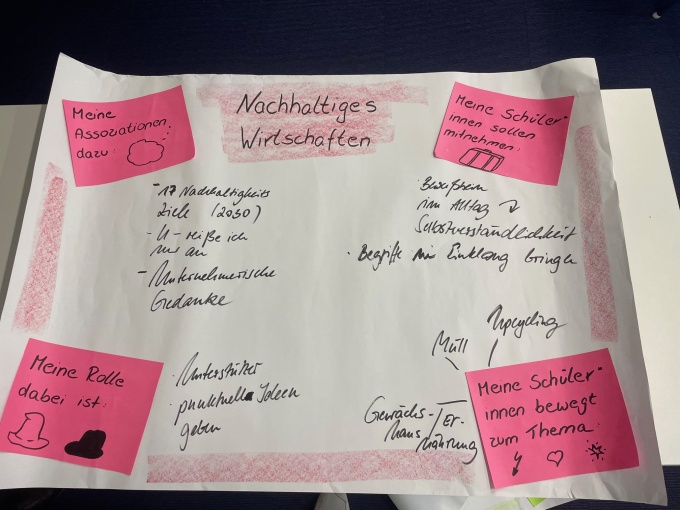 Nachhaltiges
Wirtschaften
Meine
Assoziationen
dazu:
- 17 Nachhaltigkeits
Ziele (2030)
- U - reiße ich
nur an
- Unternehmerische
Gedanke
Meine Schüler*
innen sollen
mitnehmen:
· Bewußtsein
im Alltag
Selbstverständlichkeit
· Begriffe in Einklang bringen
Meine Rolle
dabei ist:
· Unterstützer
· punktuell Ideen
geben
Upcycling
Müll
Gewächs-
haus
Er-
nährung
Meine Schüler*
innen bewegt
zum Thema: